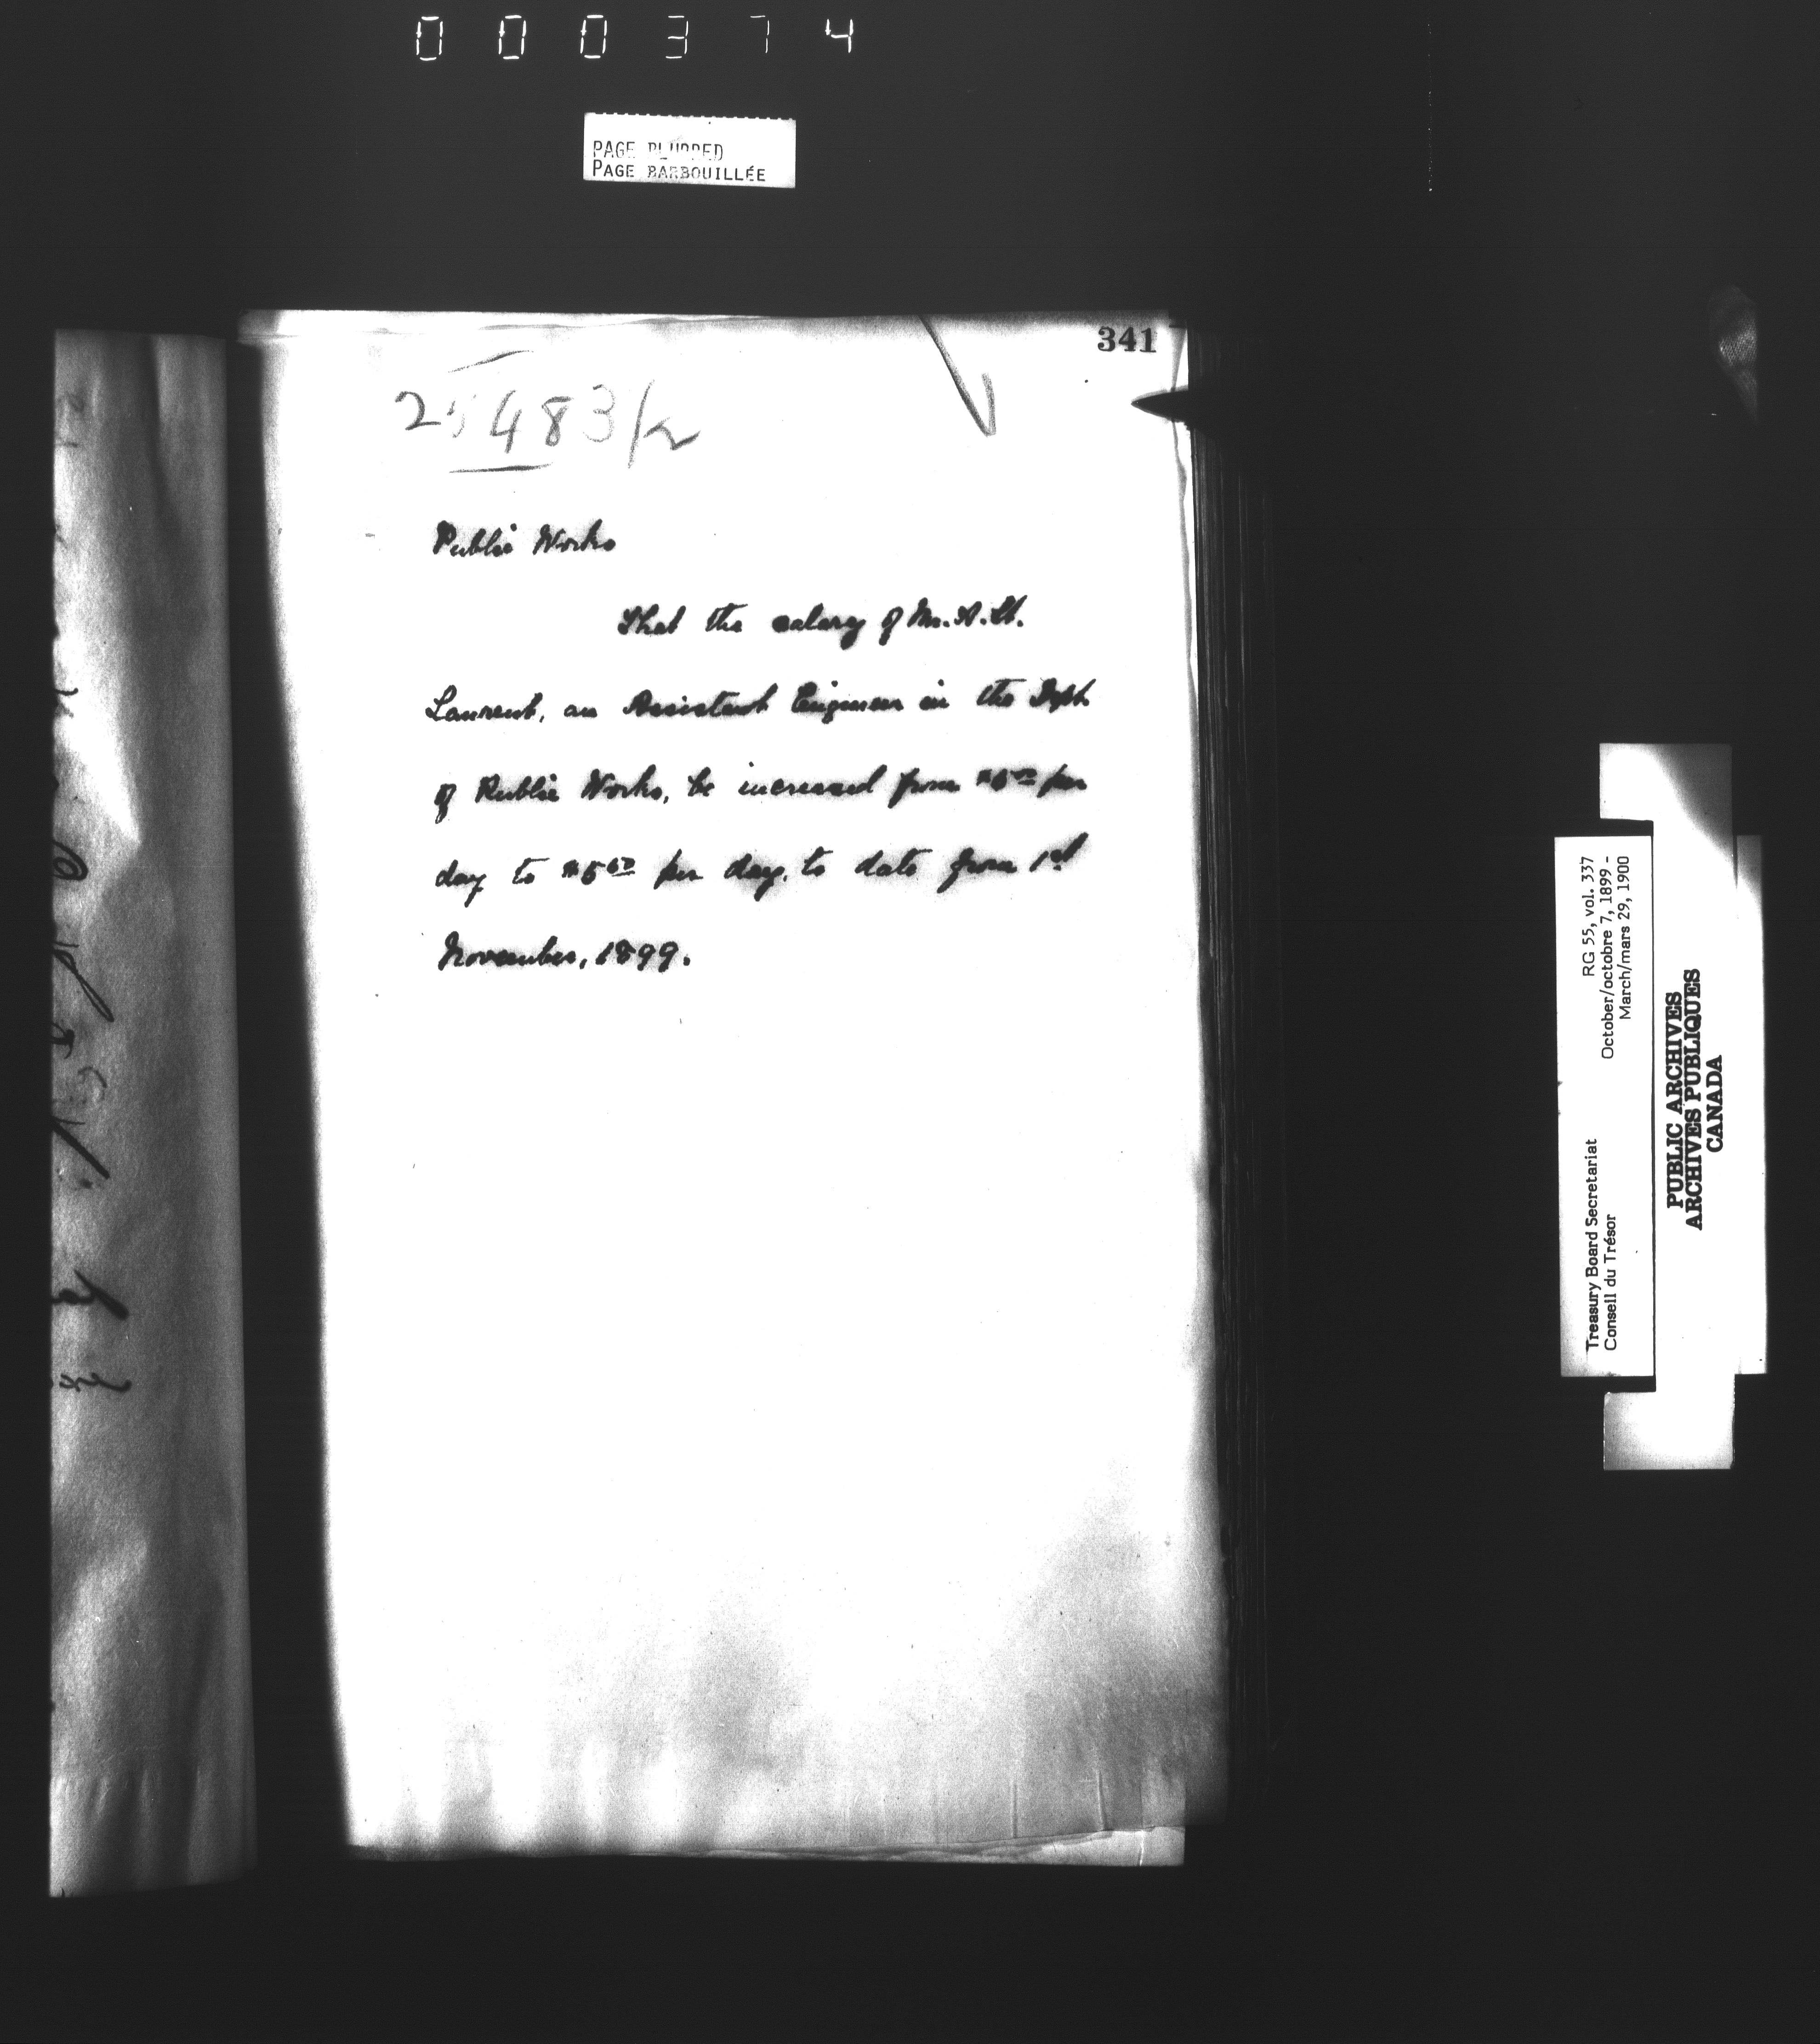 000374
PAGE BLURRED
PAGE BARBOUILLÉE
341
25483/2
Public Works
That the salary of Mr. A. St.
Laurent, an Assistant Engineer in the Dept.
of Public Works, be increased from $5⁰⁰ per
day to $5⁵⁰ per day, to date from 1st
November, 1899.
RG 55, vol. 337
October/octobre 7, 1899 -
March/mars 29, 1900
Treasury Board Secretariat
Conseil du Trésor
PUBLIC ARCHIVES
ARCHIVES PUBLIQUES
CANADA